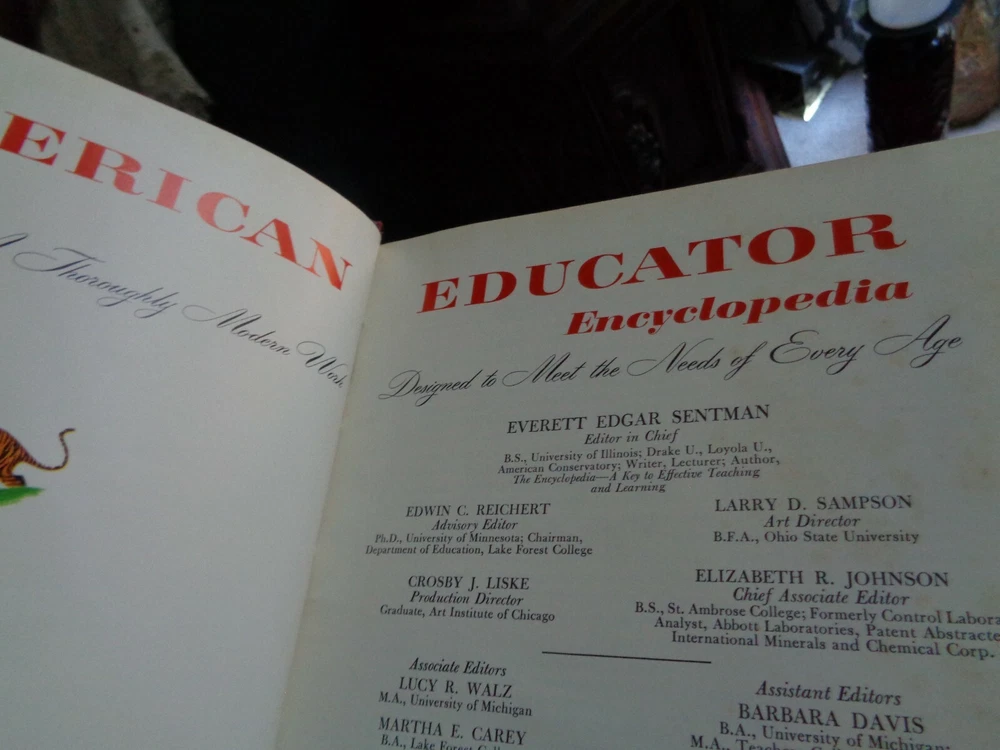 ERICAN
A Thoroughly Modern Work
EDUCATOR
Encyclopedia
Designed to Meet the Needs of Every Age
EVERETT EDGAR SENTMAN
Editor in Chief
B.S., University of Illinois; Drake U., Loyola U.,
American Conservatory; Writer, Lecturer; Author,
The Encyclopedia—A Key to Effective Teaching
and Learning
EDWIN C. REICHERT
Advisory Editor
Ph.D., University of Minnesota; Chairman,
Department of Education, Lake Forest College
LARRY D. SAMPSON
Art Director
B.F.A., Ohio State University
CROSBY J. LISKE
Production Director
Graduate, Art Institute of Chicago
ELIZABETH R. JOHNSON
Chief Associate Editor
B.S., St. Ambrose College; Formerly Control Labora
Analyst, Abbott Laboratories, Patent Abstracte
International Minerals and Chemical Corp.
Associate Editors
LUCY R. WALZ
M.A., University of Michigan
MARTHA E. CAREY
B.A., Lake Forest Coll
Assistant Editors
BARBARA DAVIS
B.A., University of Michi
M.A., Teache